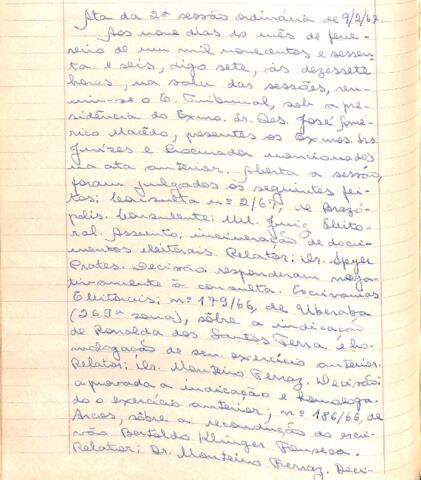 Ata da 2ª sessão ordinária de 9/2/67.
Aos nove dias do mês de feve-
reiro de um mil novecentos e sessen-
ta e seis, digo sete, às dezessete
horas, na sala das sessões, reu-
niu-se o E. Tribunal, sob a pre-
sidência do Exmo. Sr. Des. José Amé-
rico Macêdo, presentes os Exmos. Srs.
Juízes e Procurador mencionados
na ata anterior. Aberta a sessão,
foram julgados os seguintes fei-
tos: Consulta nº 2/67, de Brazó-
polis. Consulente: MM. Juiz Eleito-
ral. Assunto: incineração de docu-
mentos eleitorais. Relator: Dr. Spyer
Prates. Decisão: responderam nega-
tivamente à consulta. Escrivanias
Eleitorais: nº 179/66, de Uberaba
(269ª zona), sôbre a indicação
de Ronalda dos Santos Terra e ho-
mologação de seu exercício anterior.
Relator: Dr. Monteiro Ferraz. Decisão:
aprovada a indicação e homologa-
do o exercício anterior; nº 186/66, de
Arcos, sôbre a recondução do escri-
vão Bertoldo Klinger Fonseca.
Relator: Dr. Monteiro Ferraz. Deci-